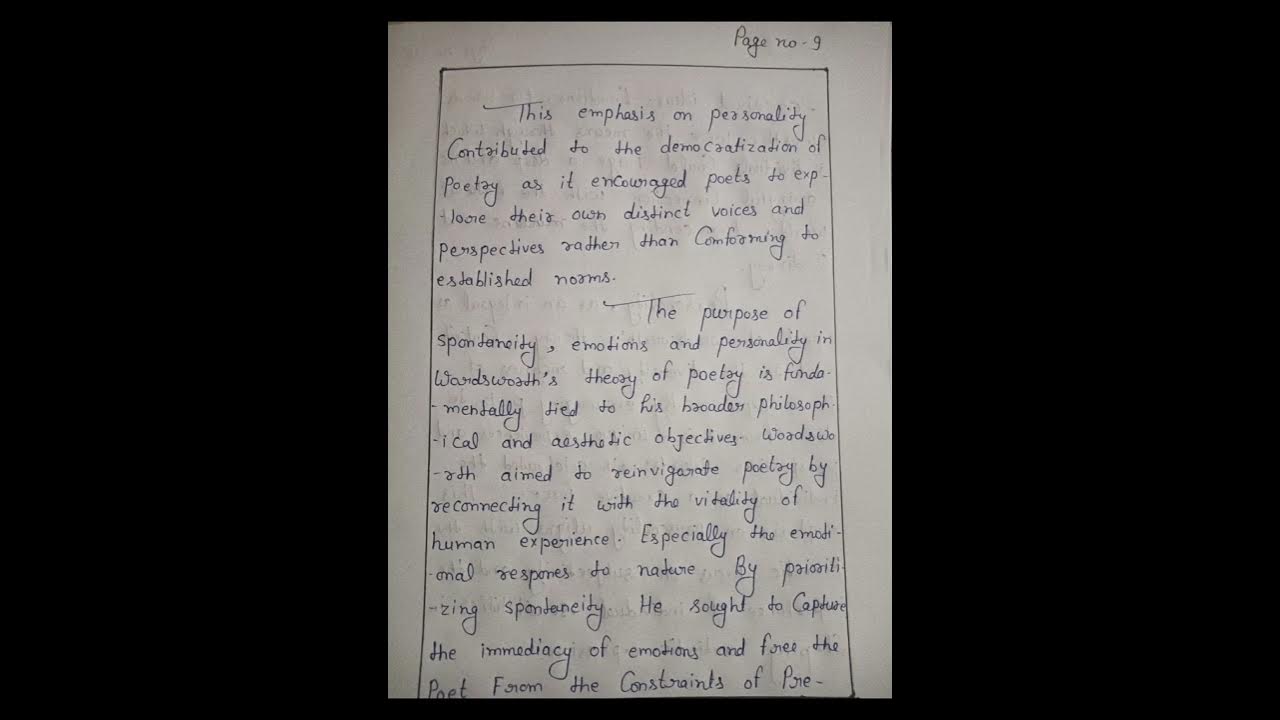 Page no-9
This emphasis on personality
Contributed to the democratization of
Poetry as it encouraged poets to exp-
-lore their own distinct voices and
perspectives rather than Conforming to
established norms.
The purpose of
spontaneity, emotions and personality in
Wardsworth's theory of poetry is funda-
-mentally tied to his broader philosoph-
-ical and aesthetic objectives. Wordswo
-rth aimed to reinvigarate poetry by
reconnecting it with the vitality of
human experience. Especially the emoti-
-onal respones to nature. By prioriti-
-zing spontaneity He sought to Capture
the immediacy of emotions and free the
Poet From the Constraints of Pre-